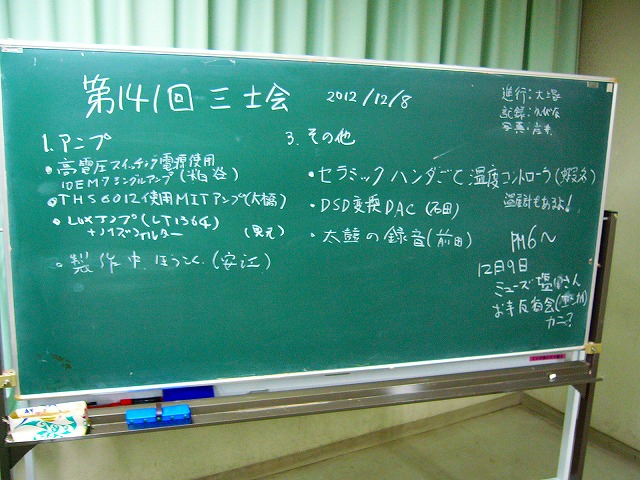 第141回 三士会 2012/12/8
進行:大塚
記録:
写真:
1. アンプ
・高電圧スイッチング電源使用
10EM7シングルアンプ
・THS6012使用MITアンプ(大橋)
・LUXアンプ(LT1364)
+ノイズフィルター
・製作中、ほうこく(安江)
3. その他
・セラミックハンダごて温度コントローラ
温度計もあるよ!
・DSD変換DAC(石田)
・太鼓の録音(前田)
PM6〜
12月9日
ミューズ塩田さん
カニ?